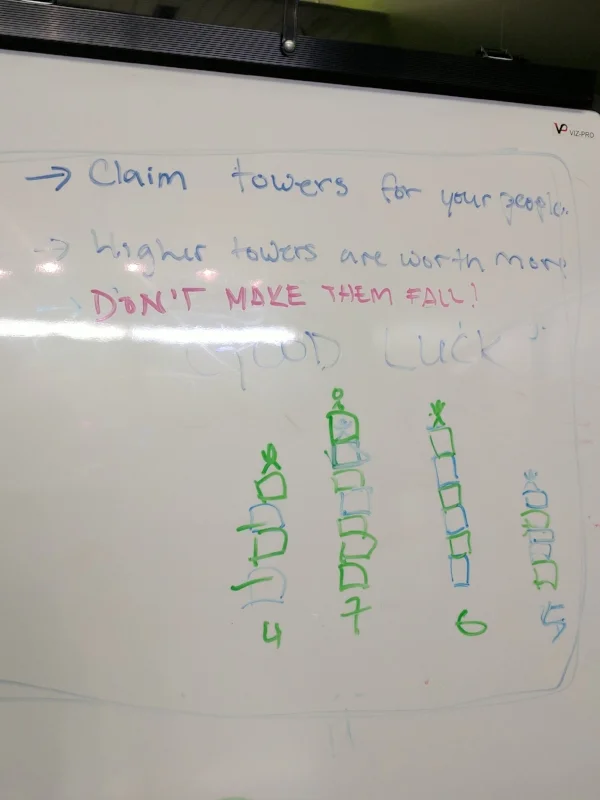 VP VIZ-PRO
→ Claim towers for your people.
→ Higher towers are worth more
DON'T MAKE THEM FALL!
GOOD LUCK
4 7 6 5